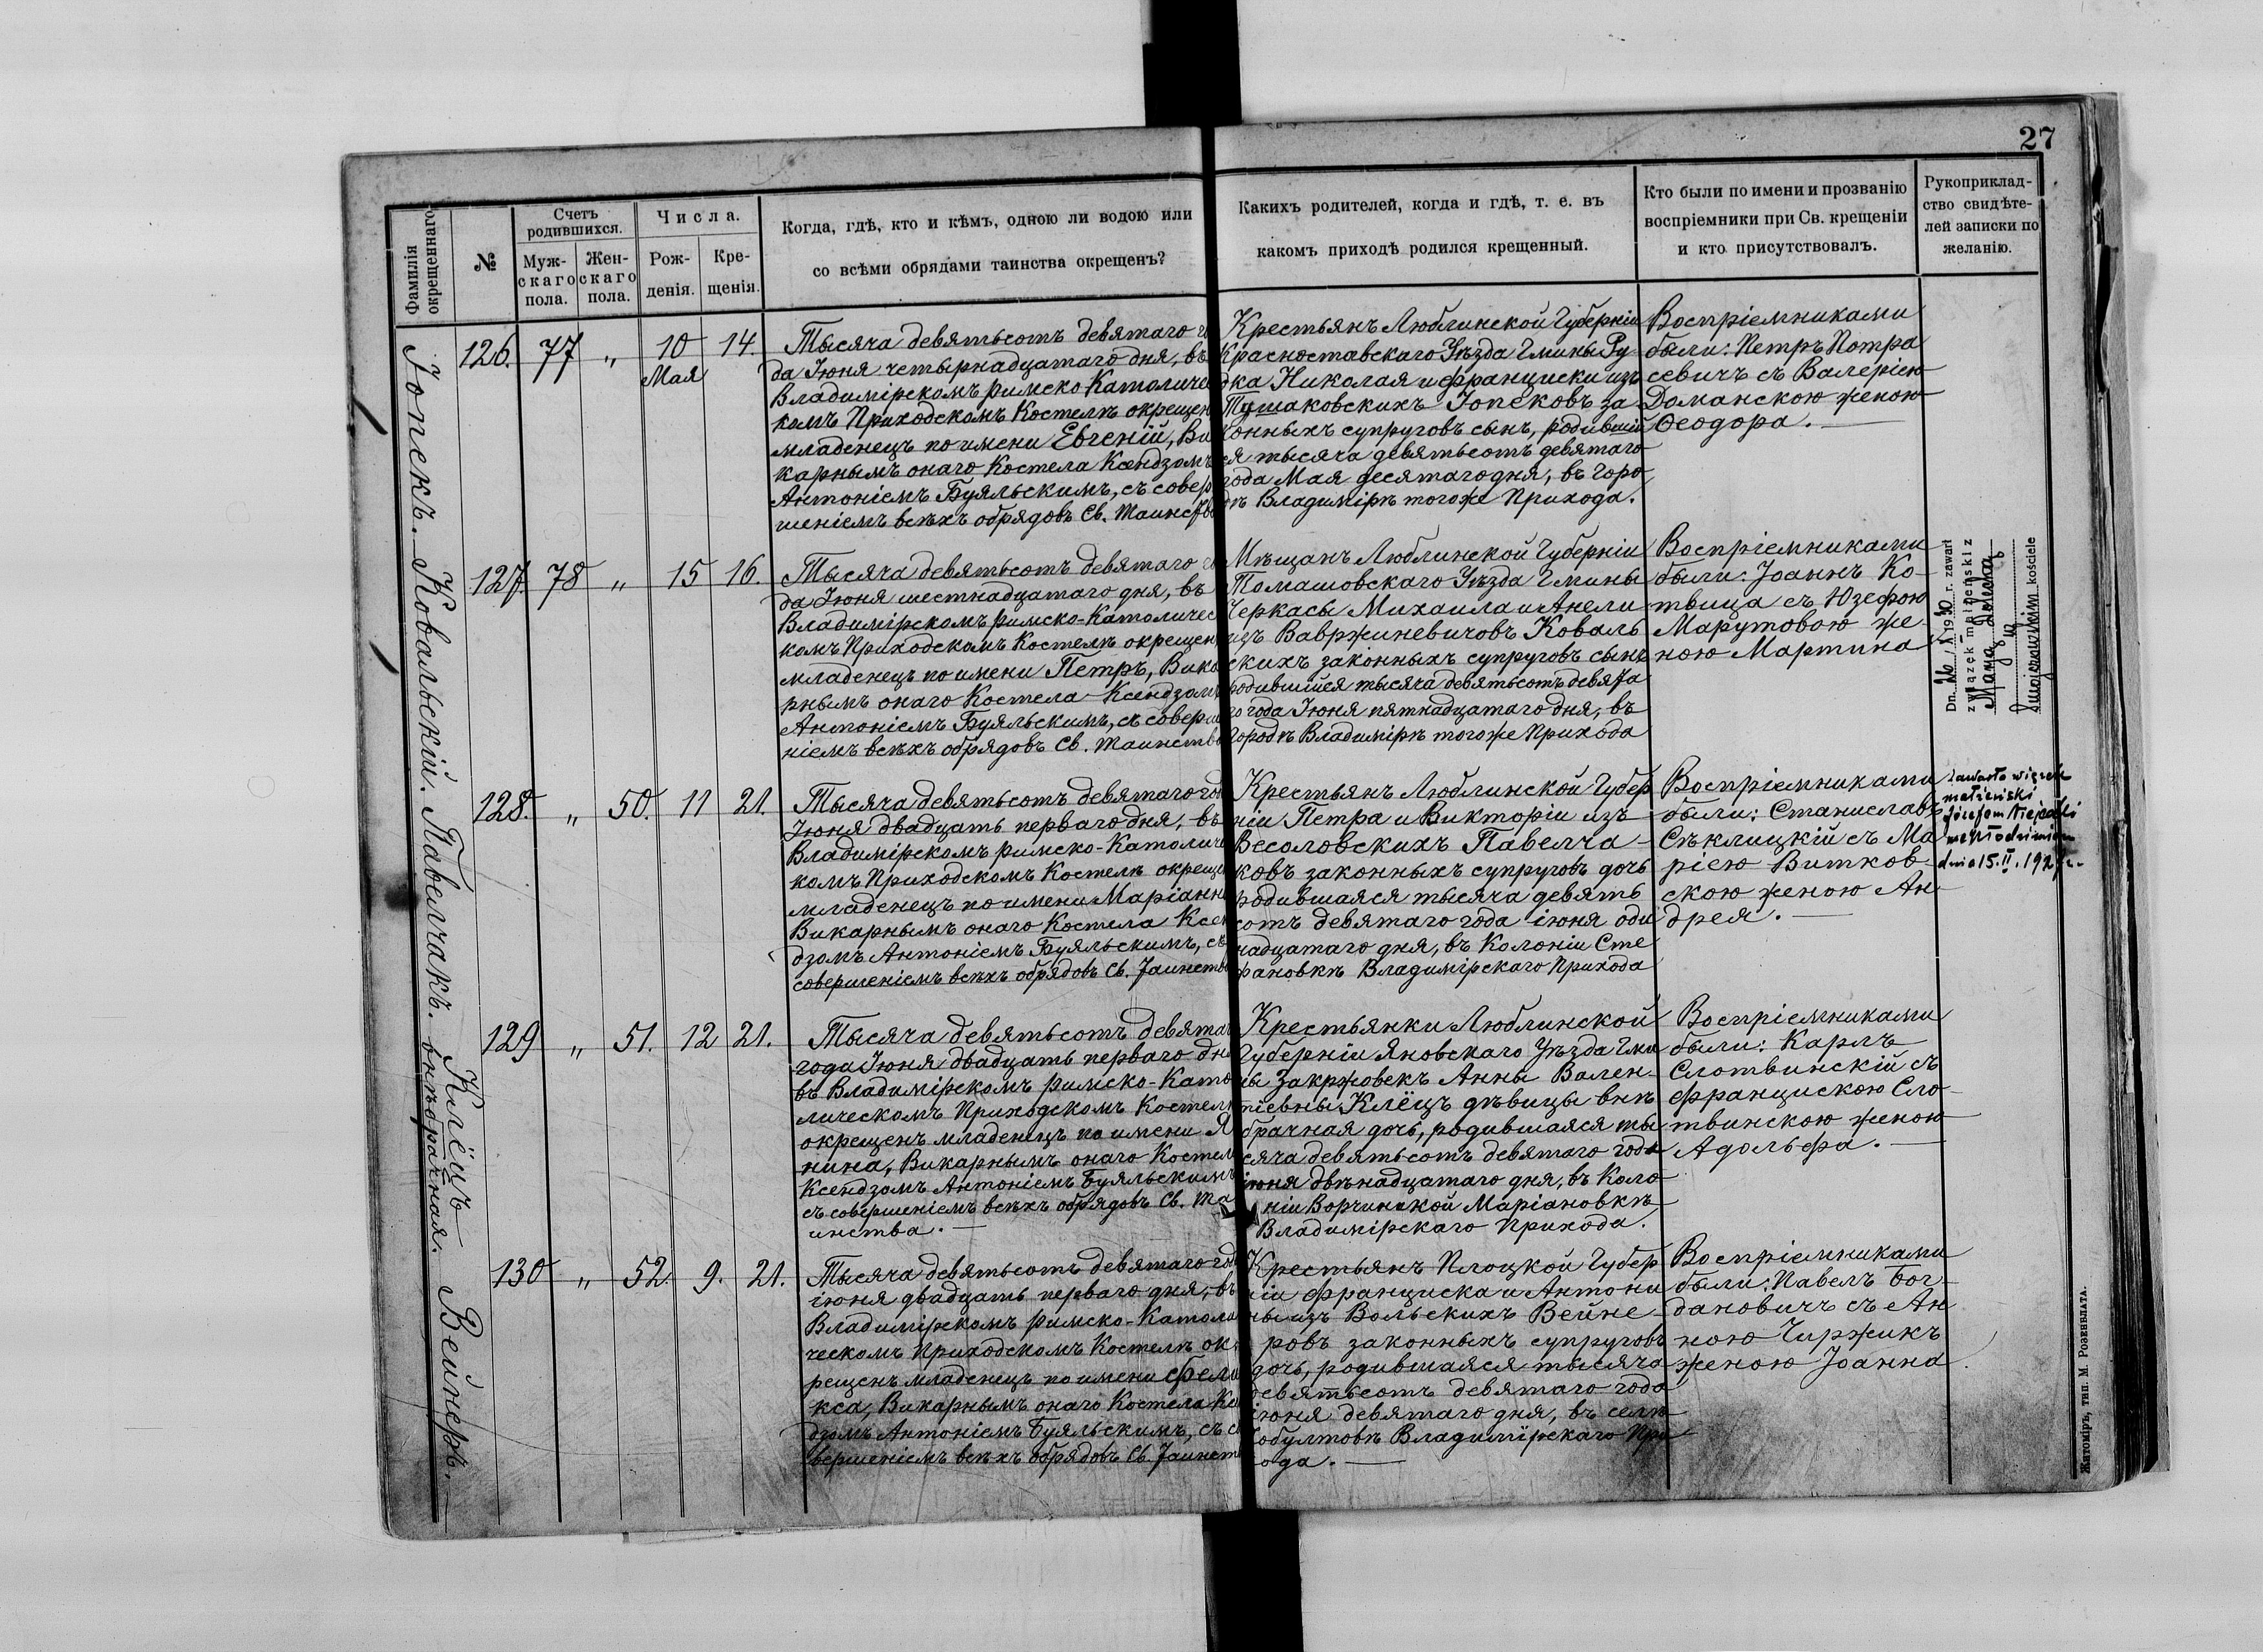 27
Фамилія
окрещеннаго.
№
Счетъ
родившихся.
Муж-
скаго
пола.
Жен-
скаго
пола.
Числа.
Рож-
денія.
Кре-
щенія.
Когда, гдѣ, кто и кѣмъ, одною ли водою или
со всѣми обрядами таинства окрещенъ?
Какихъ родителей, когда и гдѣ, т. е. въ
какомъ приходѣ родился крещенный.
Кто были по имени и прозванію
воспріемники при Св. крещеніи
и кто присутствовалъ.
Рукоприклад-
ство свидѣте-
лей записки по
желанію.
Іопекъ.
126. 77 „ 10 14.
Мая
Тысяча девятьсотъ девятаго
да Іюня четырнадцатаго дня, въ
Владимірскомъ римско-Католичес
комъ Приходскомъ Костелѣ окрещен
младенецъ по имени Евгеній, Ви
карнымъ онаго Костела Ксендзомъ
Антоніемъ Буяльскимъ, съ совер
шеніемъ всѣхъ обрядовъ Св. Таинства
Крестьянъ Люблинской Губерніи
Красноставскаго Уѣзда Гмины Ру-
дка Николая и Франциски изъ
Тушаковскихъ Іопековъ за
конныхъ супруговъ сынъ, родивший
ся тысяча девятьсотъ девятаго
года Мая десятаго дня, въ горо
дѣ Владимірѣ тогоже Прихода.
Воспріемниками
были: Петръ Потра
севичъ съ Валеріею
Доманскою женою
Ѳеодора.
Ковальскій.
127. 78 „ 15 16.
Тысяча девятьсотъ девятаго
да Іюня шестнадцатаго дня, въ
Владимірскомъ римско-Католичес
комъ Приходскомъ Костелѣ окрещен
младенецъ по имени Петръ, Вика
рнымъ онаго Костела Ксендзомъ
Антоніемъ Буяльскимъ, съ соверше
ніемъ всѣхъ обрядовъ Св. Таинства
Мѣщанъ Люблинской Губерніи
Томашовскаго Уѣзда Гмины
Черкасы Михаила и Анели
изъ Вавржиневичовъ Коваль
скихъ законныхъ супруговъ сынъ
родившийся тысяча девятьсотъ девята
го года Іюня пятнадцатаго дня, въ
Городѣ Владимірѣ тогоже Прихода
Воспріемниками
были: Іоаннъ Ко-
твица съ Юзефою
Марутовою же-
ною Мартина
Dn. 1930 r. zawarł
związek małżeński z
Marją
w
kościele
Павелчакъ.
128. „ 50. 11 21.
Тысяча девятьсотъ девятаго год
Іюня двадцать перваго дня, въ
Владимірскомъ римско-Католиче
комъ Приходскомъ Костелѣ окреще
младенецъ по имени Маріанн
Викарнымъ онаго Костела Ксен
дзомъ Антоніемъ Буяльскимъ, съ
совершеніемъ всѣхъ обрядовъ Св. Таинства
Крестьянъ Люблинской Губер
ніи Петра и Викторіи изъ
Весоловскихъ Павелча-
ковъ законныхъ супруговъ дочь
родившаяся тысяча девять
сотъ девятаго года іюня оди
надцатаго дня, въ Колоніи Сте
фановкѣ Владимірскаго Прихода
Воспріемниками
были: Станиславъ
Сѣклицкій съ Ма
ріею Витков-
скою женою Ан-
дрея.
zawarła związek
małżeński
Józefem
we Włodzimierzu
dnia 15.II.192
Клёцъ
внѣбрачная.
129 „ 51. 12 21.
Тысяча девятьсотъ девята
года Іюня двадцать перваго дня
въ Владимірскомъ римско-Като
лическомъ Приходскомъ Костелѣ
окрещенъ младенецъ по имени Я
нина, Викарнымъ онаго Костела
Ксендзомъ Антоніемъ Буяльскимъ
съ совершеніемъ всѣхъ обрядовъ Св. Та
инства.
Крестьянки Люблинской
Губерніи Яновскаго Уѣзда Гми
ны Закржовекъ Анны Вален-
тіевны Клёцъ дѣвицы внѣ
брачная дочь, родившаяся ты
сяча девятьсотъ девятаго года
іюня двѣнадцатаго дня, въ Коло
ніи Ворчинской Маріановкѣ
Владимірскаго Прихода.
Воспріемниками
были: Карлъ
Слотвинскій съ
Францискою Сло-
твинскою женою
Адольфа.
Вейнеръ.
130 „ 52. 9. 21.
Тысяча девятьсотъ девятаго год
іюня двадцать перваго дня, въ
Владимірскомъ римско-Католи
ческомъ Приходскомъ Костелѣ ок
рещенъ младенецъ по имени Фели
кса, Викарнымъ онаго Костела Ксе
дзомъ Антоніемъ Буяльскимъ, съ со
вершеніемъ всѣхъ обрядовъ Св. Таинства
Крестьянъ Плоцкой Губер
ніи Франциска и Антони
ны изъ Вольскихъ Вейне-
ровъ законныхъ супруговъ
дочь, родившаяся тысяча
девятьсотъ девятаго года
іюня девятаго дня, въ селѣ
Хобултовѣ Владимірскаго При
хода.
Воспріемниками
были: Павелъ Бог-
дановичъ съ Ан
ною Чиржикъ
женою Іоанна.
Житоміръ, тип. М. Розенблата.